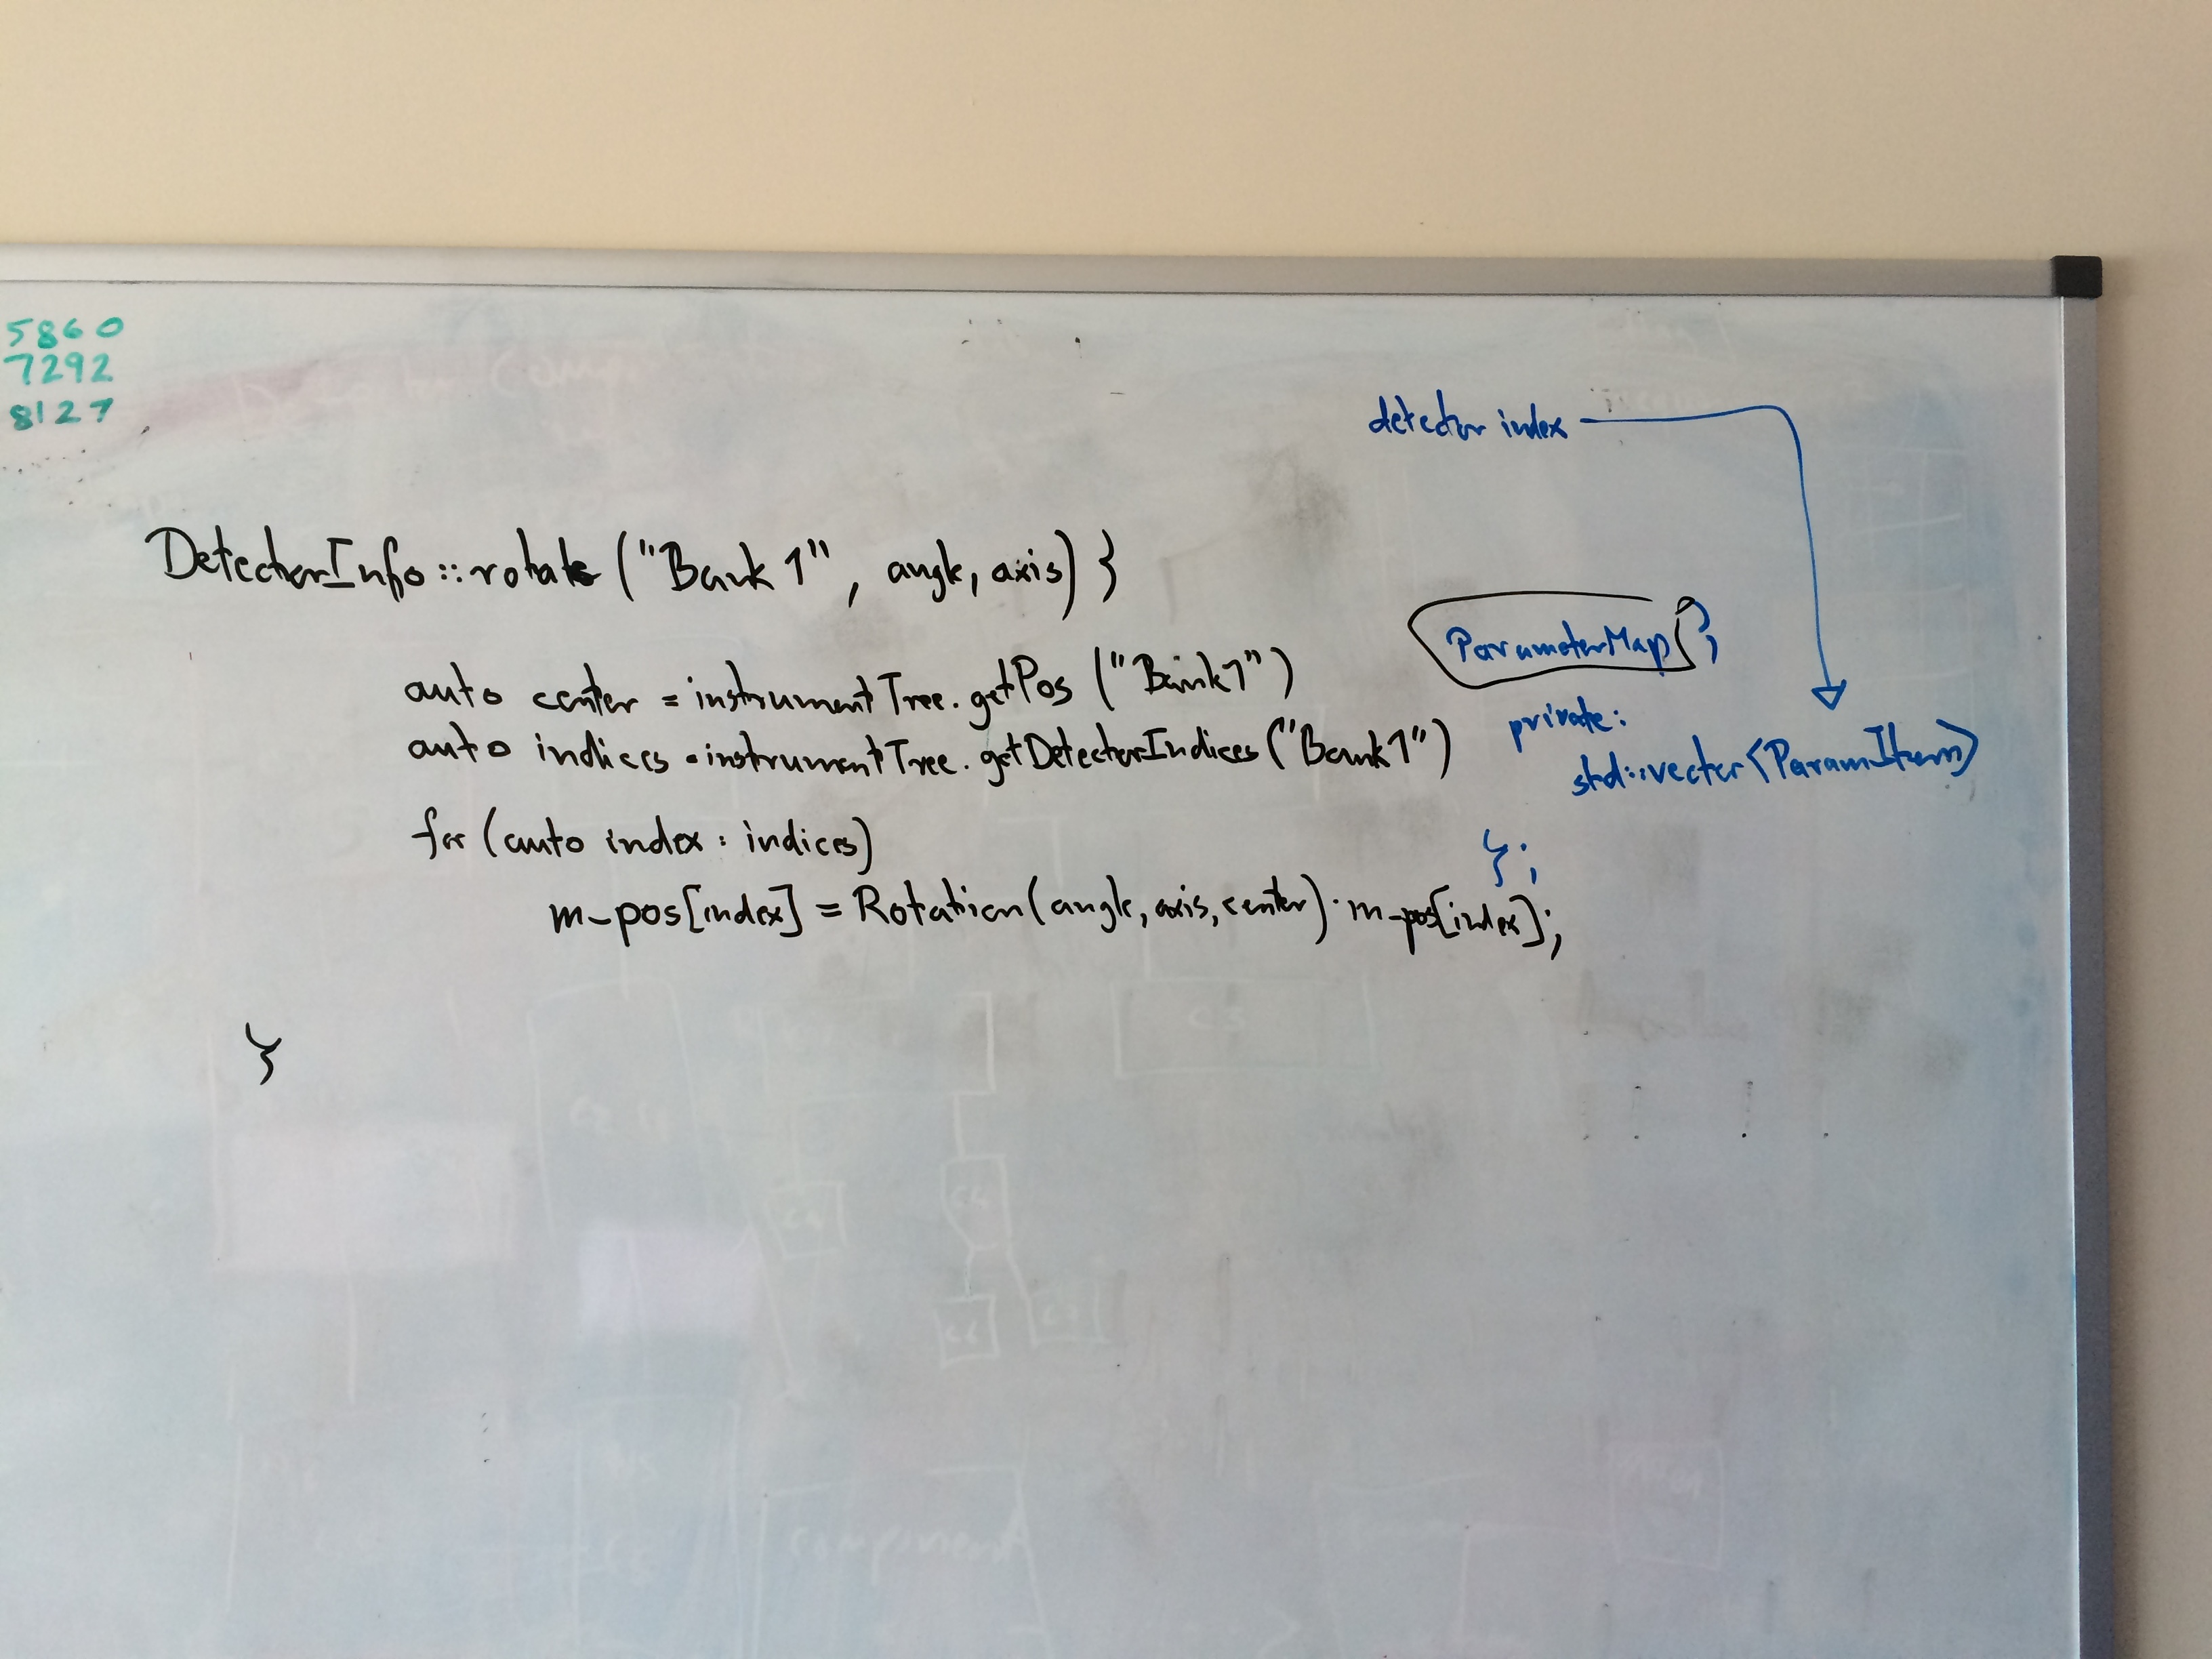 5860
7292
8127
detector index
DetectorInfo::rotate ("Bank 1", angle, axis) }
auto center = instrumentTree.getPos ("Bank1")
auto indices = instrumentTree.getDetectorIndices ("Bank1")
for (auto index : indices)
m_pos[index] = Rotation(angle, axis, center) · m_pos[index];
}
ParameterMap {
private:
std::vector<ParamItem>
};